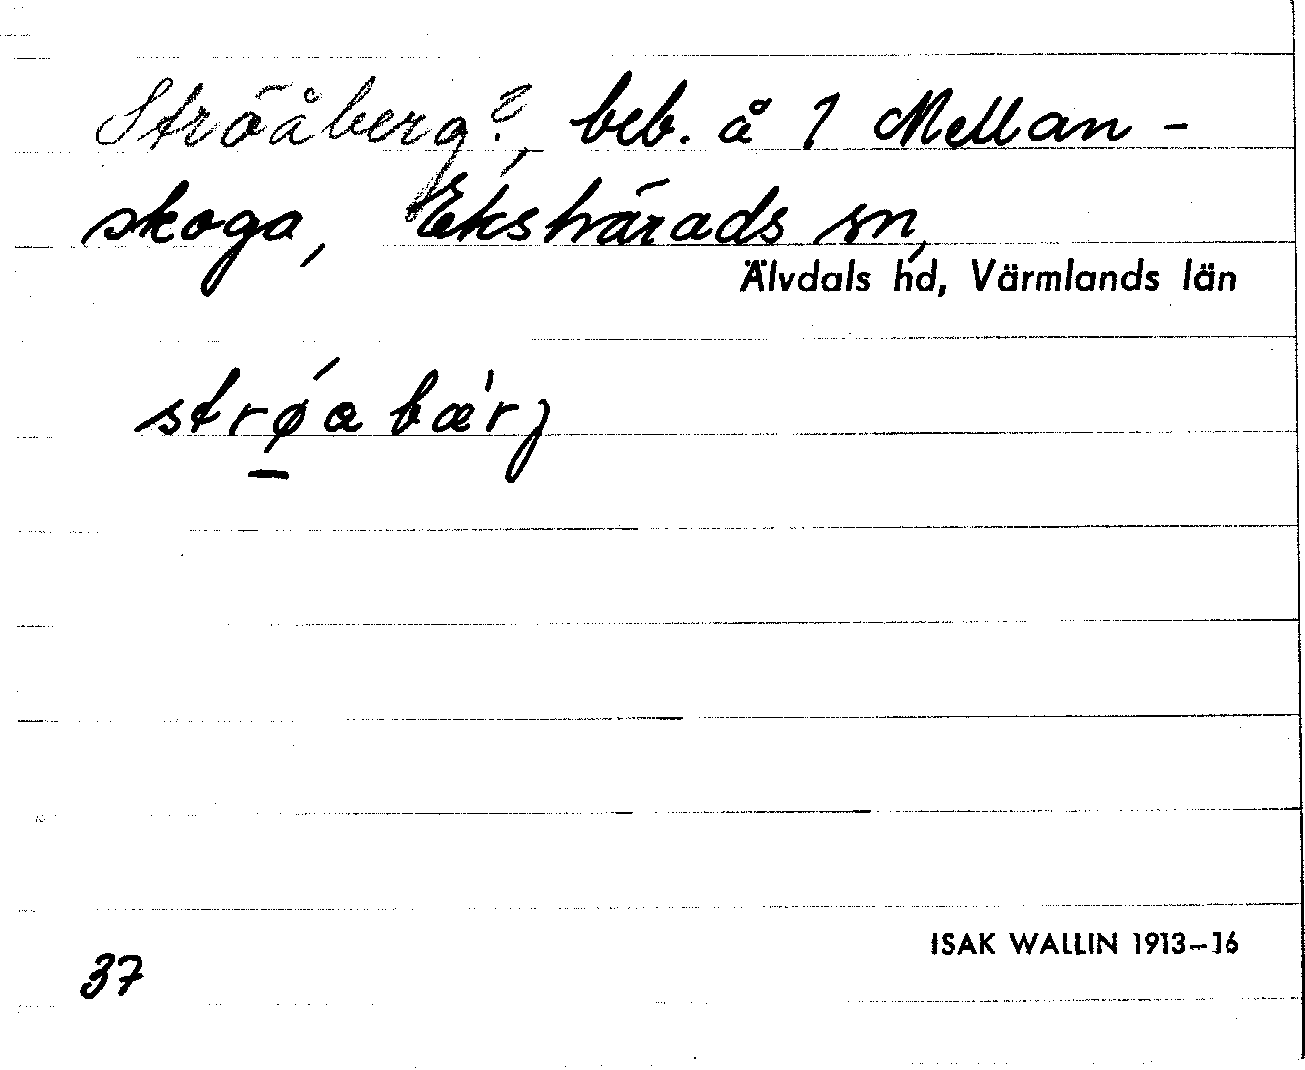 Ströåberg?, beb. å 1 Mellan-
skoga, Ekshärads sn,
Älvdals hd, Värmlands län
strǿ̠a bæ'rj
37
ISAK WALLIN 1913-16